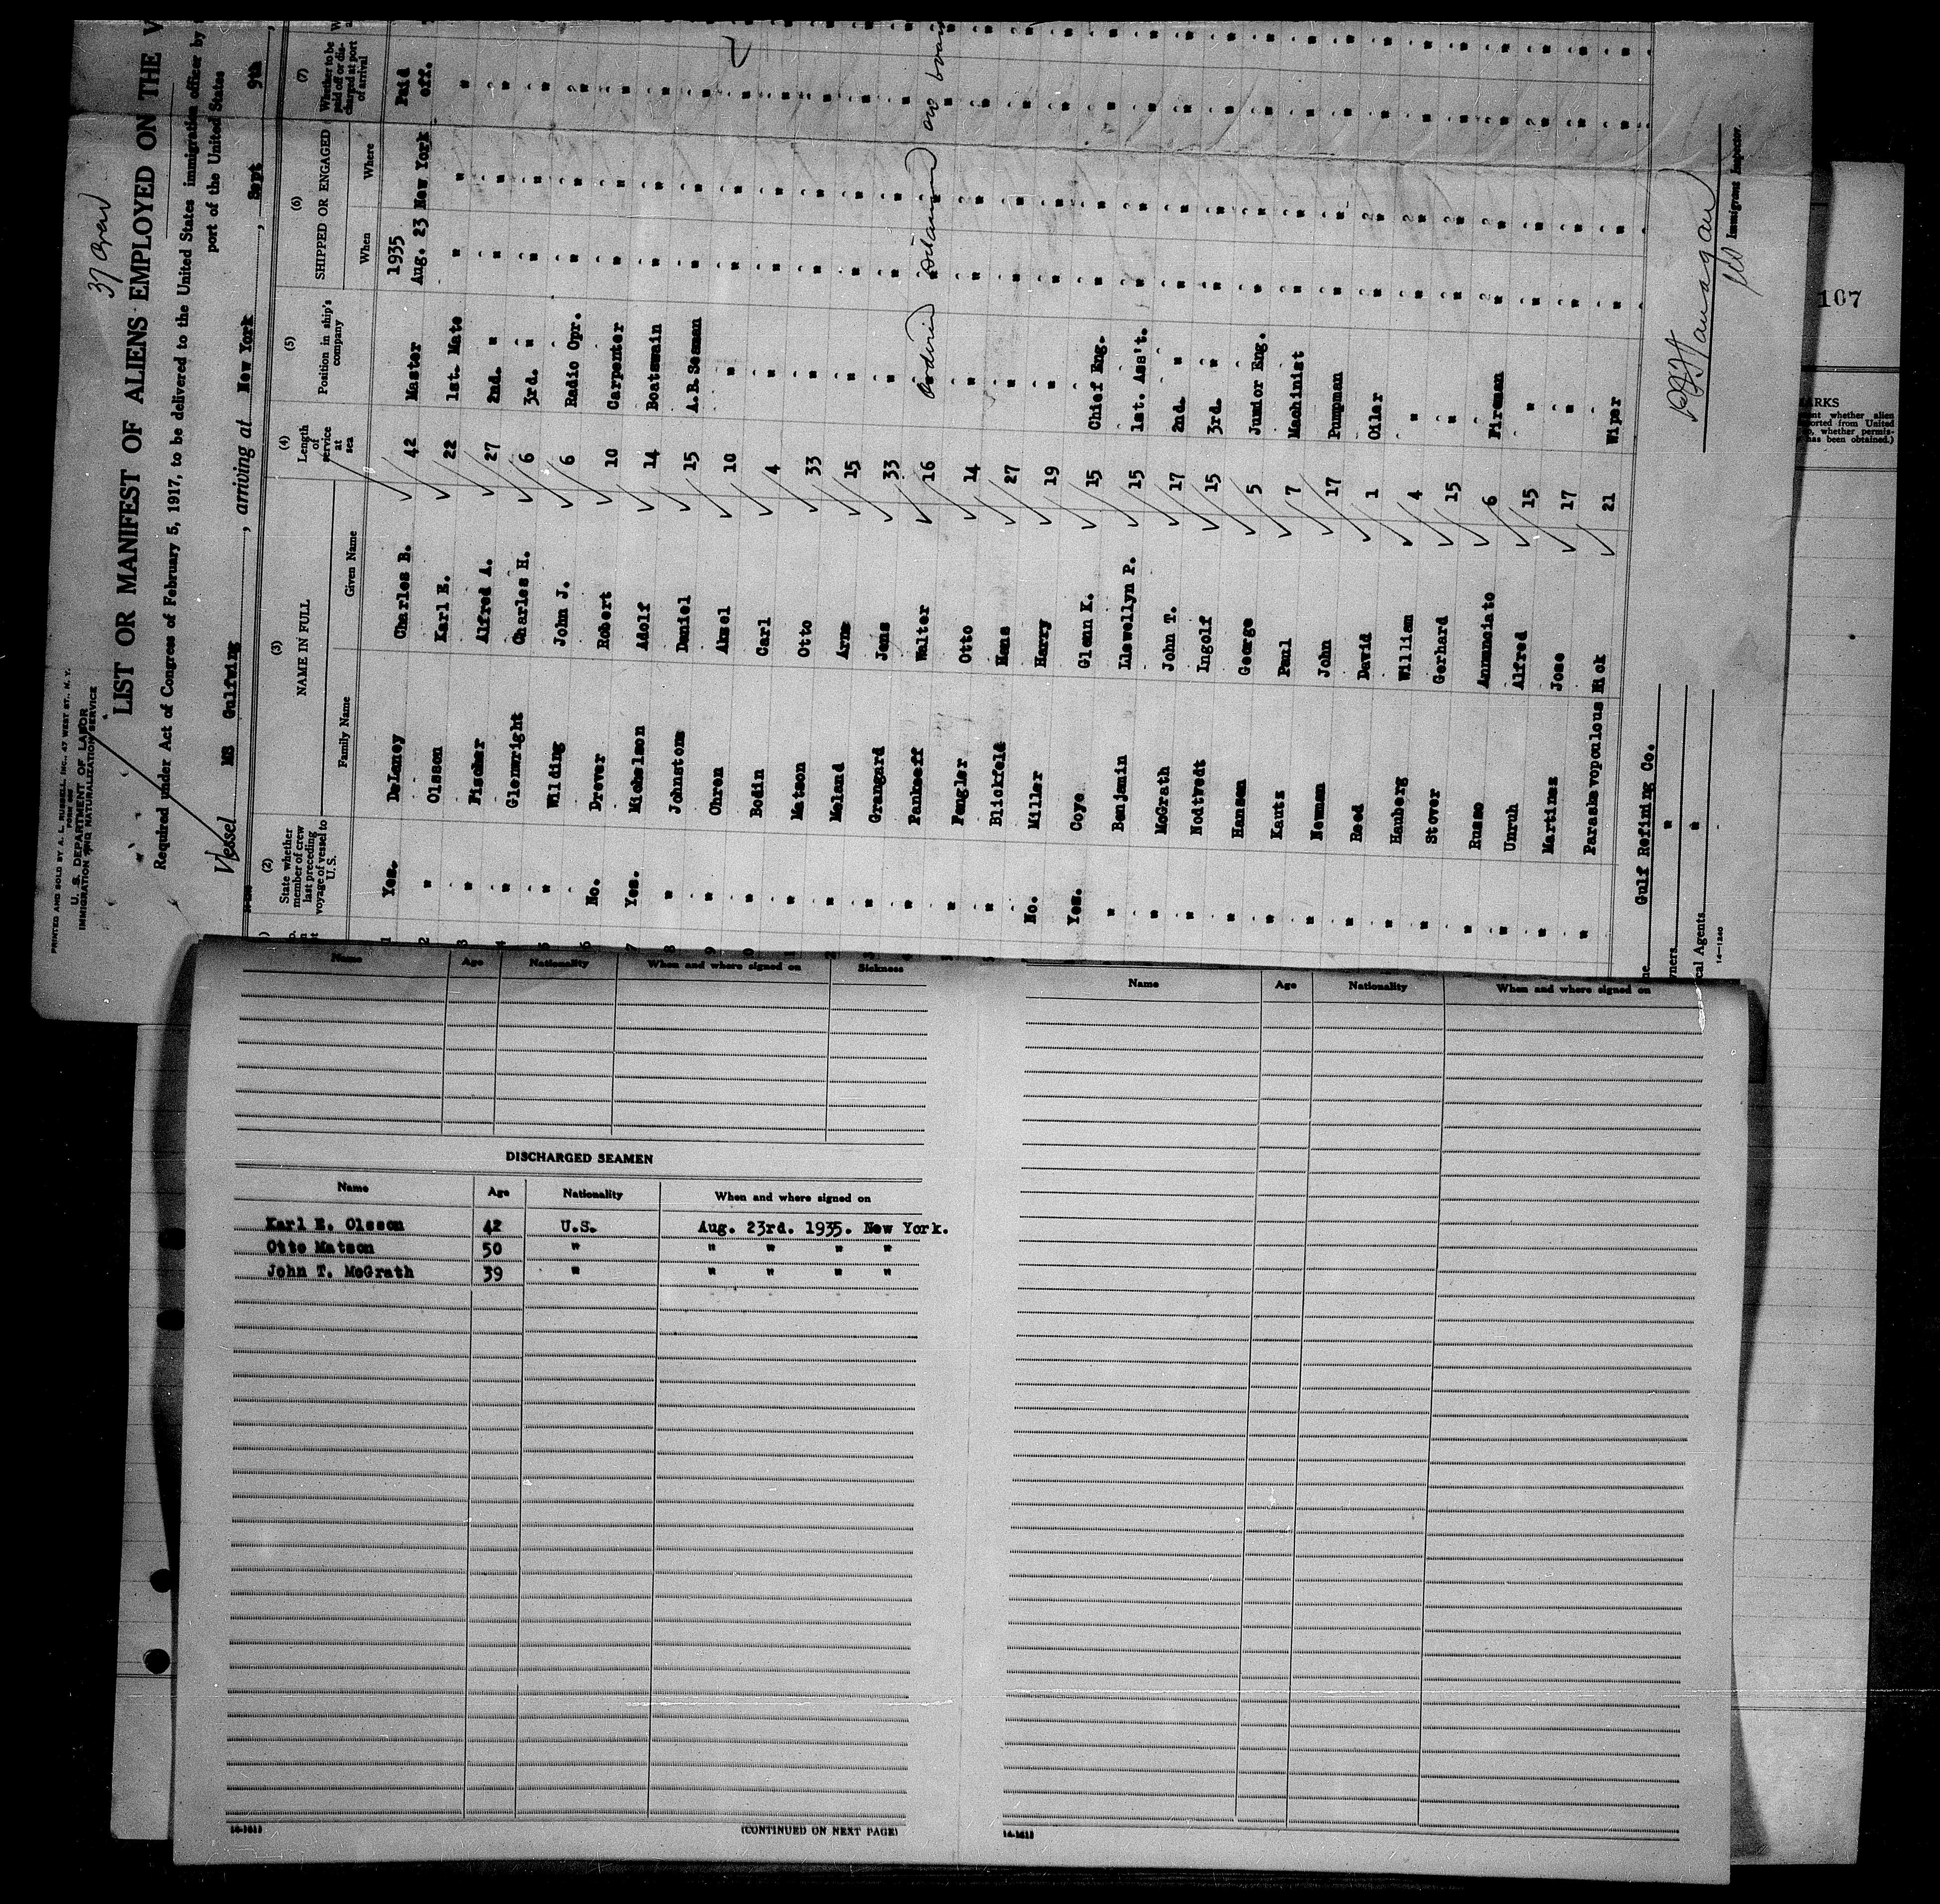 37 Crew
PRINTED AND SOLD BY A. L. RUSSELL, INC., 47 WEST ST., N. Y.
U. S. DEPARTMENT OF LABOR
IMMIGRATION AND NATURALIZATION SERVICE
LIST OR MANIFEST OF ALIENS EMPLOYED ON THE V
Required under Act of Congress of February 5, 1917, to be delivered to the United States immigration officer by
port of the United States
Vessel MS Gulfwing , arriving at New York , Sept 9th ,
(2) (3) (4) (5) (6) (7)
State whether member of crew last preceding voyage of vessel to U. S. NAME IN FULL Length of service at sea Position in ship's company SHIPPED OR ENGAGED Whether to be paid off or discharged at port of arrival
Family Name Given Name When Where
1935
1 Yes. DeLaney Charles B. 42 Master Aug. 23 New York Paid off.
2 " Olsson Karl E. 22 1st. Mate " " "
3 " Fischer Alfred A. 27 2nd. " " " "
4 " Glenwright Charles H. 6 3rd. " " " "
5 " Wilding John J. 6 Radio Opr. " " "
6 No. Drever Robert 10 Carpenter " " "
7 Yes. Michelson Adolf 14 Boatswain " " "
8 " Johnstone Daniel 15 A.B. Seaman " " "
9 " Ohren Aksel 10 " " " "
0 " Bodin Carl 4 " " " "
1 " Matson Otto 33 " " " "
2 " Meland Arne 15 " " " "
3 " Grangard Jens 33 " " " "
4 " Pankseff Walter 16 " " "
" Pengler Otto 14 " " " "
" Blickfeld Hans 27 " " " "
No. Miller Harry 19 " " " "
Yes. Coye Glenn K. 15 Chief Eng. " " "
" Benjamin Llewellyn P. 15 1st. Ass't. " " "
" McGrath John T. 17 2nd. " " " "
" Nodtvedt Ingolf 15 3rd. " " " "
" Hansen George 5 Junior Eng. " " "
" Kautz Paul 7 Machinist " " "
" Newman John 17 Pumpman " " "
" Reed David 1 Oiler " " "
" Hauberg William 4 " " " "
" Stover Gerhard 15 " " " "
" Russo Annunciato 6 Fireman " " "
" Unruh Alfred 15 " " " "
" Martinez Jose 17 " " " "
" Paraskevopoulous Nick 21 Wiper " " "
Gulf Refining Co.
wners "
cal Agents "
14-1240
Immigrant Inspector.
107
MARKS
ent whether alien
ported from United
o, whether permis-
has been obtained.)
Name Age Nationality When and where signed on Sickness
DISCHARGED SEAMEN
Name Age Nationality When and where signed on
Karl E. Olsson 42 U.S. Aug. 23rd. 1935. New York.
Otto Matson 50 " " " " "
John T. McGrath 39 " " " " "
(CONTINUED ON NEXT PAGE)
Name Age Nationality When and where signed on